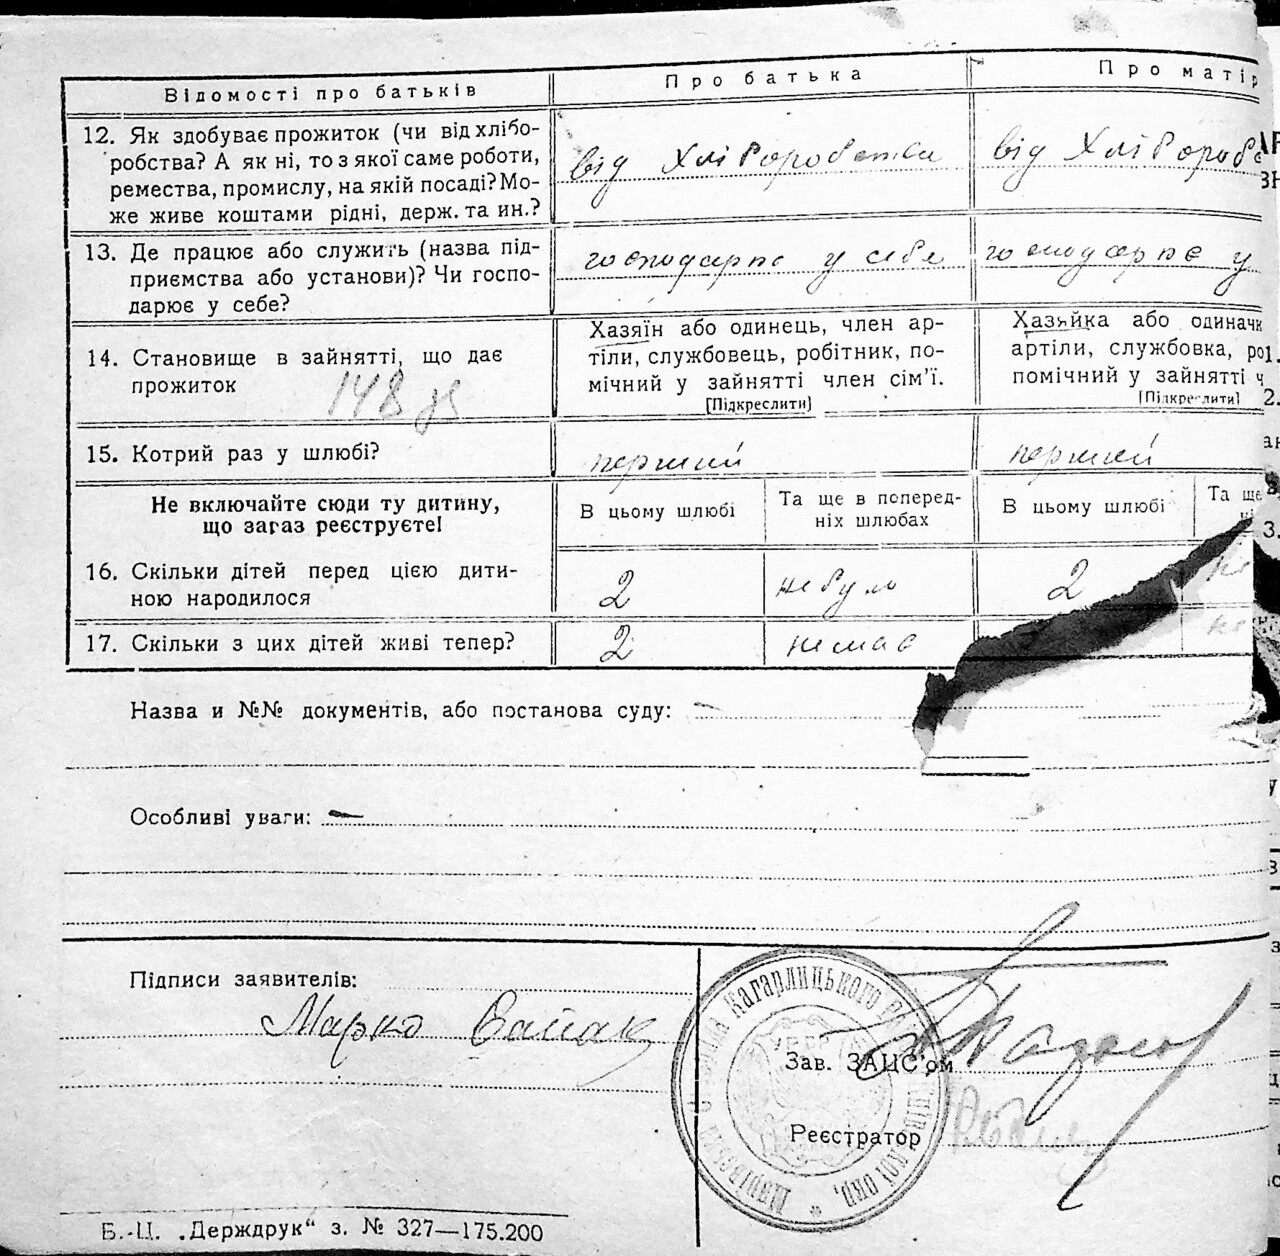 Відомості про батьків
Про батька
Про матір
12. Як здобуває прожиток (чи від хлібо-
робства? А як ні, то з якої саме роботи,
ремества, промислу, на якій посаді? Мо-
же живе коштами рідні, держ. та ин.?
від Хліборобства
від Хлібороб
13. Де працює або служить (назва під-
приємства або установи)? Чи госпо-
дарює у себе?
господарює у себе
господарює у
14. Становище в зайнятті, що дає
прожиток
148
Хазяїн або одинець, член ар-
тіли, службовець, робітник, по-
мічний у зайнятті член сім'ї.
[Підкреслити]
Хазяйка або одиначк
артіли, службовка, ро
помічний у зайнятті ч
[Підкреслити]
15. Котрий раз у шлюбі?
перший
перший
Не включайте сюди ту дитину,
що загаз реєструєте!
В цьому шлюбі
Та ще в поперед-
ніх шлюбах
В цьому шлюбі
Та ще
16. Скільки дітей перед цією дити-
ною народилося
2
не було
2
не
17. Скільки з цих дітей живі тепер?
2
немає
не
Назва и №№ документів, або постанова суду: —
Особливі уваги: —
Підписи заявителів:
Марко
Кагарлицького
УСРР
Зав. ЗАЦС'ом
Реєстратор
Б.-Ц. „Держдрук" з. № 327—175.200